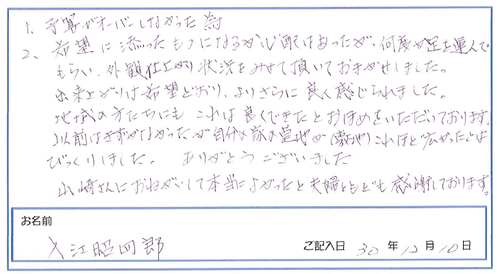 1. 予算がオーバーしなかった為
2. 希望に添ったものになるか心配はあったが、何度か足を運んで
もらい、外観仕上り状況をみせて頂いておまかせしました。
出来上がりは希望どおり、よりさらに良く感じられました。
地域の方たちにもこれは良くできたとおほめをいただいております。
以前はきずかなかったが自分の家の宅地が(敷地)これほど広かったとは
びっくりしました。 ありがとうございました
山崎さんにおねがいして本当によかったと夫婦ともども感謝しております。
お名前
入江昭四郎
ご記入日 30年12月10日